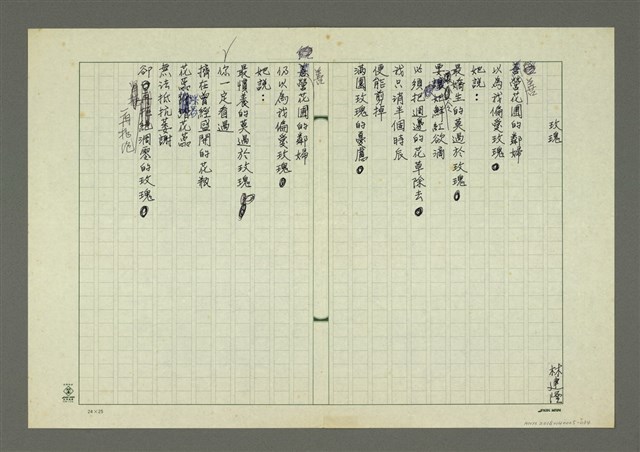 玫瑰
林建隆
善營花圃的鄰婦
以為我偏愛玫瑰。
她說:
最嬌生的莫過於玫瑰。
要鮮紅欲滴
必須把週邊的花草除去。
我只消半個時辰
便能剪掉
滿園玫瑰的憂慮。
善營花圃的鄰婦
仍以為我偏愛玫瑰。
她說:
最慣養的莫過於玫瑰。
你一定看過
擠在曾經盛開的花穀
花蕊花蕊
無法抵抗萎謝
卻凋零的玫瑰。
24×25